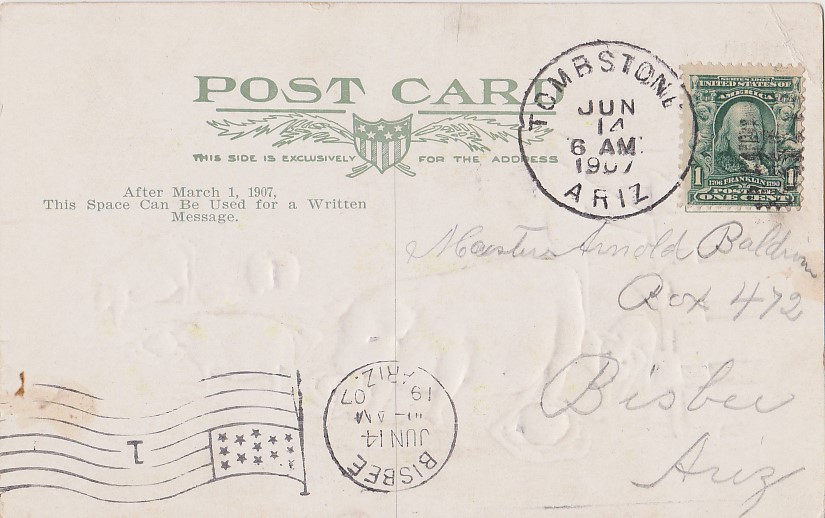 POST CARD
THIS SIDE IS EXCLUSIVELY FOR THE ADDRESS
After March 1, 1907,
This Space Can Be Used for a Written
Message.
TOMBSTONE
JUN
14
6 AM
1907
ARIZ
SERIES 1902
UNITED STATES OF
AMERICA
1 1706 FRANKLIN 1790 1
POSTAGE
ONE CENT
Master Arnold Baldwin
Box 472
Bisbee
Ariz
BISBEE
JUN 14
-AM
19 07
ARIZ.
1